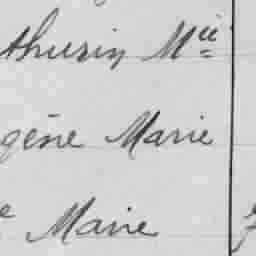 thurin Mie
gène Marie
e Marie